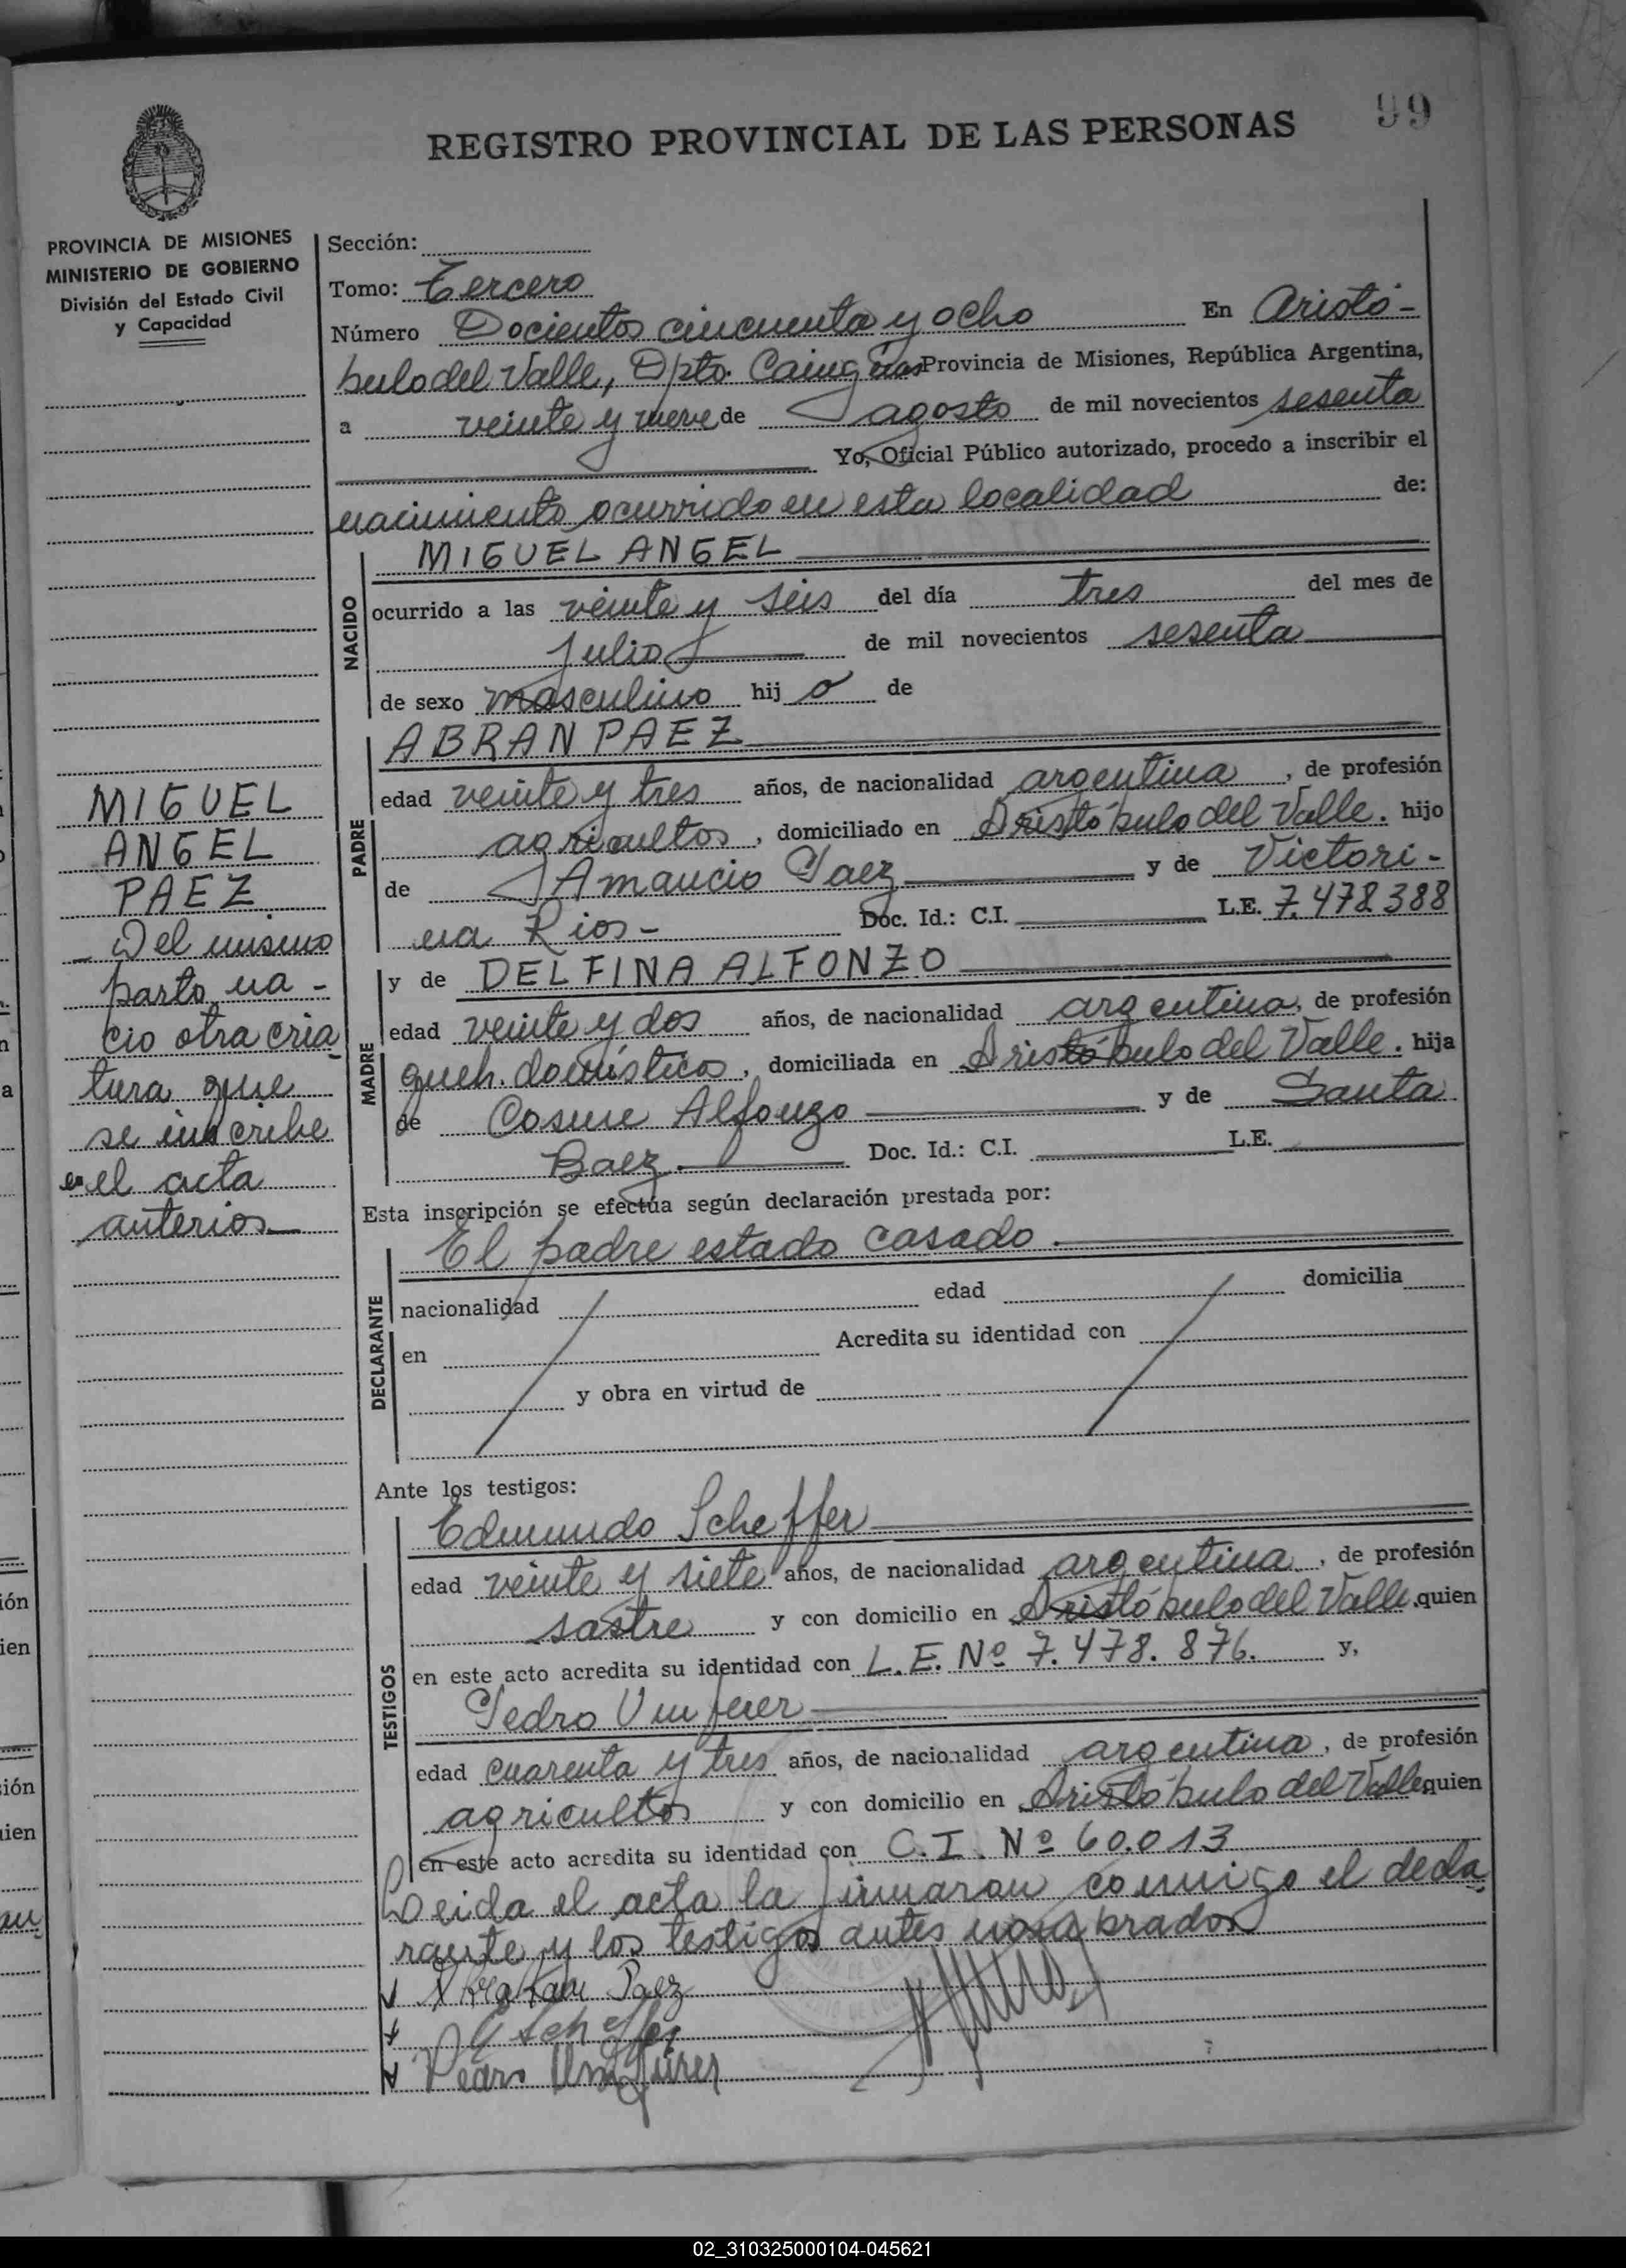 99
REGISTRO PROVINCIAL DE LAS PERSONAS
PROVINCIA DE MISIONES
MINISTERIO DE GOBIERNO
División del Estado Civil
y Capacidad
Sección:
Tomo: Tercero
Número Docientos cincuenta y ocho En Aristó-
bulo del Valle, Dpto. Cainguas Provincia de Misiones, República Argentina,
a veinte y nueve de agosto de mil novecientos sesenta
Yo, Oficial Público autorizado, procedo a inscribir el
nacimiento ocurrido en esta localidad de:
NACIDO
MIGUEL ANGEL
ocurrido a las veinte y seis del día tres del mes de
Julio de mil novecientos sesenta
de sexo masculino hij o de
PADRE
ABRAN PAEZ
edad veinte y tres años, de nacionalidad argentina, de profesión
agricultor, domiciliado en Aristóbulo del Valle. hijo
de Amancio Paez y de Victori-
na Rios- Doc. Id.: C.I. L.E. 7.478.388
MADRE
y de DELFINA ALFONZO
edad veinte y dos años, de nacionalidad argentina, de profesión
queh. domésticos, domiciliada en Aristóbulo del Valle. hija
de Cosme Alfonzo y de Santa
Baez. Doc. Id.: C.I. L.E.
MIGUEL
ANGEL
PAEZ
- Del mismo
parto na-
cio otra cria
tura que
se inscribe
en el acta
anterior
Esta inscripción se efectúa según declaración prestada por:
DECLARANTE
El padre estado casado.
nacionalidad edad domicilia
en Acredita su identidad con
y obra en virtud de
Ante los testigos:
TESTIGOS
Edmundo Scheffer
edad veinte y siete años, de nacionalidad argentina, de profesión
sastre y con domicilio en Aristóbulo del Valle. quien
en este acto acredita su identidad con L.E. Nº 7.478.876. y,
Pedro
edad cuarenta y tres años, de nacionalidad argentina, de profesión
agricultor y con domicilio en Aristóbulo del Valle quien
en este acto acredita su identidad con C.I. Nº 60.013
Leida el acta la firmaron conmigo el decla
rante y los testigos antes nombrados
Abraham Paez
Pedro
02_310325000104-045621